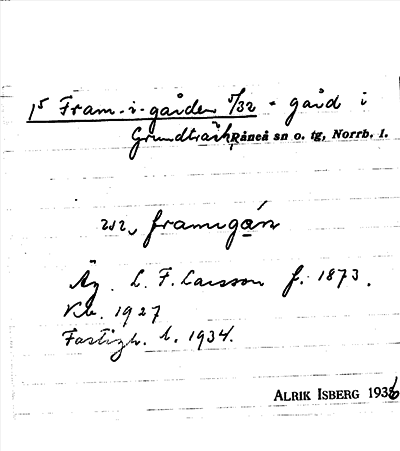 15 Fram-i-gården 5/32 - gård i
Grundträsk, Råneå sn o. tg, Norrb. l.
framigån
Äg. L. F. Larsson f. 1873.
Kb. 1927
Fastigh. l. 1934.
ALRIK ISBERG 1936